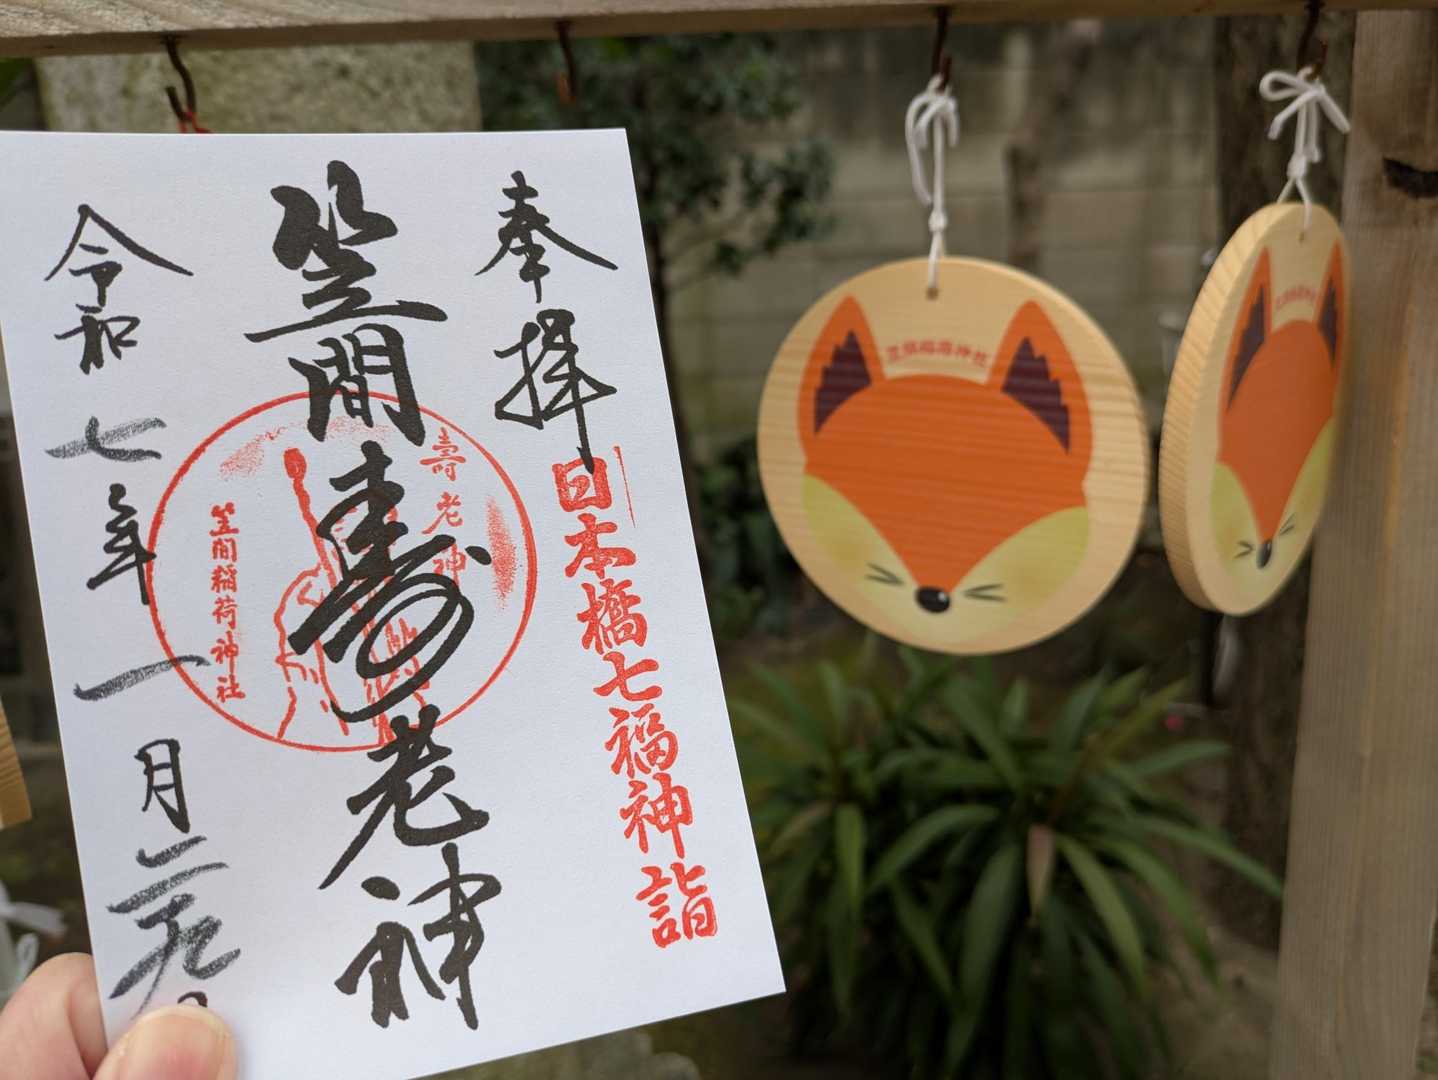 奉拝
日本橋七福神詣
笠間寿老神
壽老神
笠間稲荷神社
令和七年一月二十九日
笠間稲荷神社